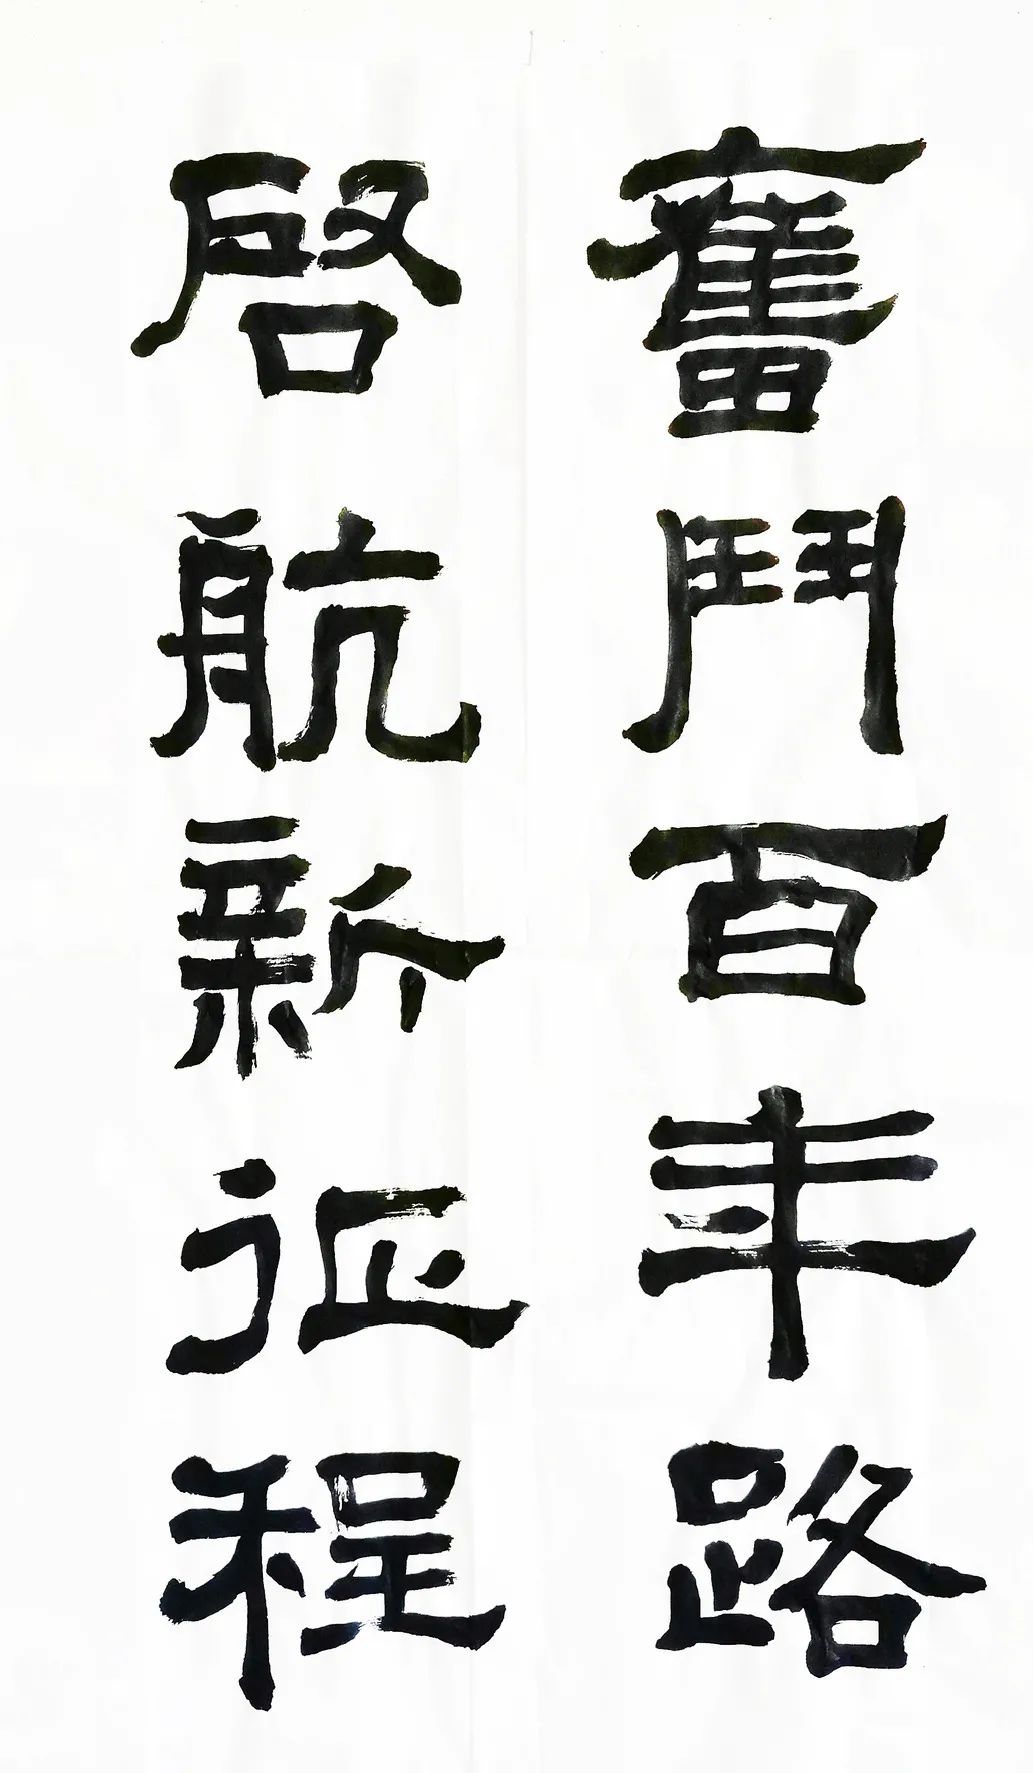 奮鬥百年路
啓航新征程